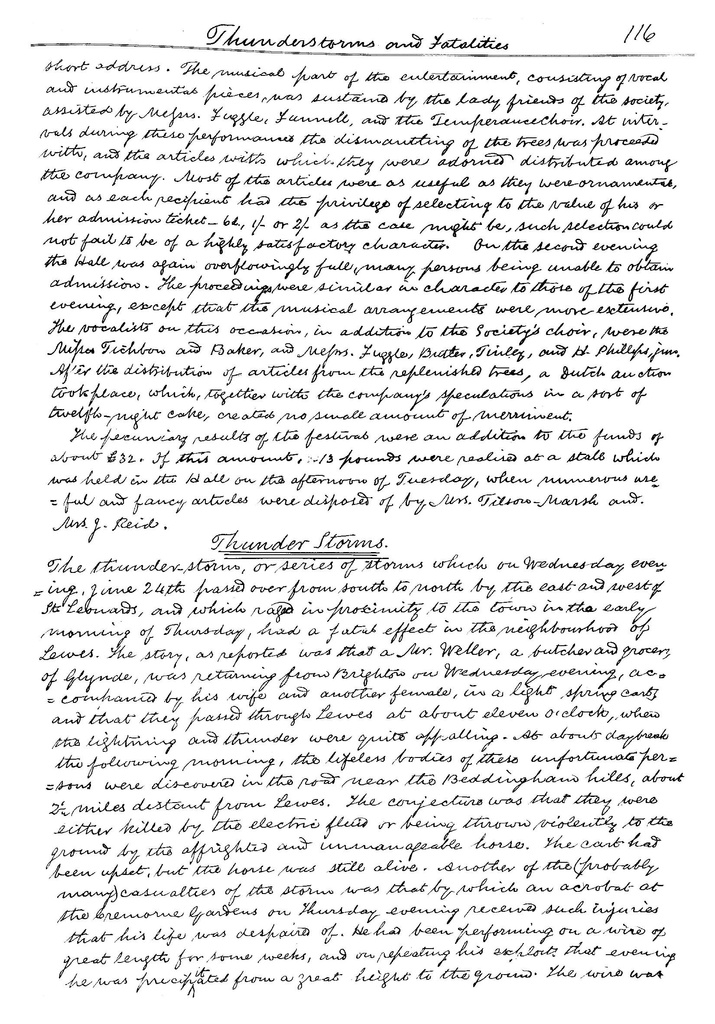 Thunderstorms and Fatalities 116
short address. The musical part of the entertainment, consisting of vocal
and instrumental pieces, was sustained by the lady friends of the society,
assisted by Messrs. Fuggle, Funnell, and the Temperance Choir. At inter-
vals during these performances the dismantling of the trees was proceeded
with, and the articles with which they were adorned distributed among
the company. Most of the articles were as useful as they were ornamental,
and as each recipient had the privilege of selecting to the value of his or
her admission ticket – 6d, 1/- or 2/- as the case might be, such selection could
not fail to be of a highly satisfactory character. On the second evening
the Hall was again overflowingly full, many persons being unable to obtain
admission. The proceedings were similar in character to those of the first
evening, except that the musical arrangements were more extensive.
The vocalists on this occasion, in addition to the Society's choir, were the
Misses Tichbon and Baker, and Messrs. Fuggle, Butler, Tinley, and H. Phillips, jun.
After the distribution of articles from the replenished trees, a Dutch auction
took place, which, together with the company's speculations in a sort of
twelfth-night cake, created no small amount of merriment.
The pecuniary results of the festival were an addition to the funds of
about £32. If this amount, 13 pounds were realised at a stall which
was held in the Hall on the afternoon of Tuesday, when numerous use=
=ful and fancy articles were disposed of by Mrs. Tilson-Marsh and
Mrs. J. Reid.
Thunder Storms.
The thunder-storm, or series of storms which on Wednesday even=
=ing, June 24th passed over from south to north by the east and west of
St. Leonards, and which raged in proximity to the town in the early
morning of Thursday, had a fatal effect in the neighbourhood of
Lewes. The story, as reported was that a Mr. Weller, a butcher and grocer,
of Glynde, was returning from Brighton on Wednesday evening, ac=
=companied by his wife and another female, in a light spring cart,
and that they passed through Lewes at about eleven o'clock, when
the lightning and thunder were quite appalling. At about daybreak
the following morning, the lifeless bodies of these unfortunate per=
=sons were discovered in the road near the Beddingham hills, about
2½ miles distant from Lewes. The conjecture was that they were
either killed by the electric fluid or being thrown violently to the
ground by the affrighted and unmanageable horse. The cart had
been upset, but the horse was still alive. Another of the (probably
many) casualties of the storm was that by which an acrobat at
the Cremorne Gardens on Thursday evening received such injuries
that his life was despaired of. He had been performing on a wire of
great length for some weeks, and on repeating his exploit that evening
he was precipitated from a great height to the ground. The wire was